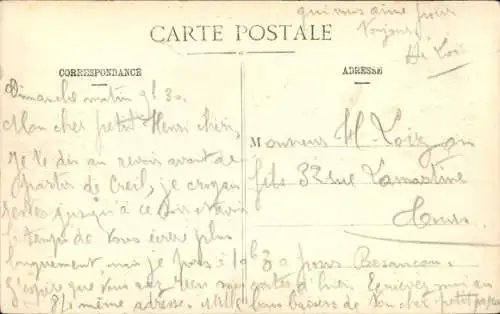 qui vous aime pour
toujours
CARTE POSTALE
CORRESPONDANCE
ADRESSE
Dimanche matin 9h 30
Mon cher petit Henri chéri,
Je te dis au revoir avant de
partir de Creil, je croyais
rester jusqu'à ce soir
le temps de vous écrire plus
longuement, mais je pars à 10h 30 pour Besançon.
J'espère que vous avez reçu mes cartes d'hier. Ecrivez moi au
même adresse. bons baisers de ton cher petit papa
Monsieur H.
fils 32 rue Lamartine